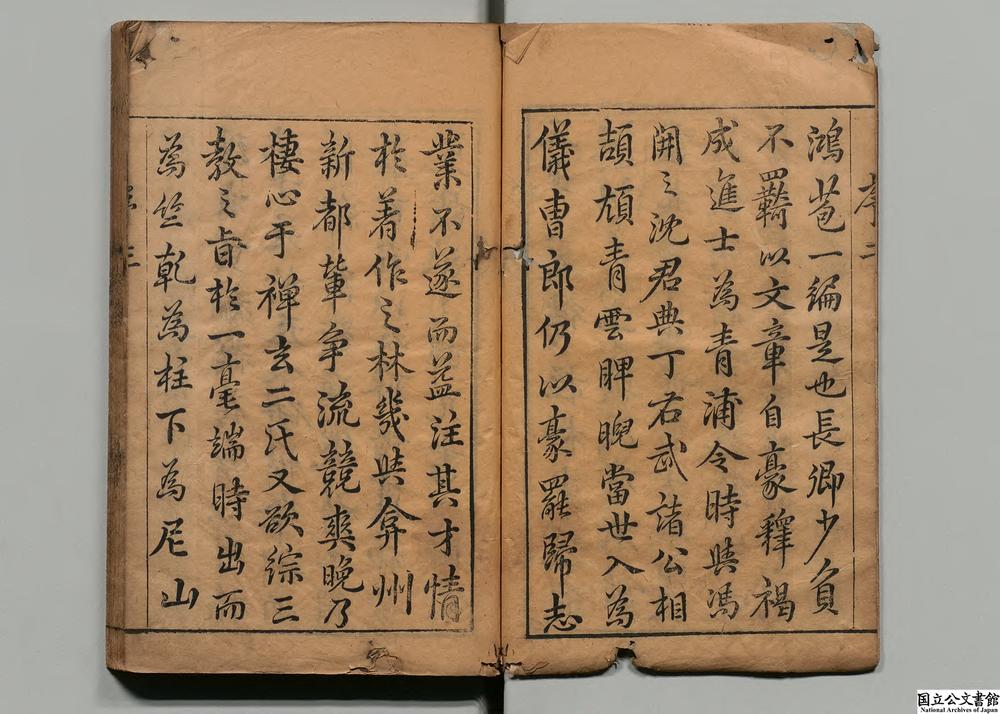 序二
鴻苞一編是也長卿少負
不羈以文章自豪釋褐
成進士為青浦令時與馮
開之沈君典丁右武諸公相
頡頏青雲睥睨當世入為
儀曹郎仍以豪罷歸志
業不遂而益注其才情
於著作之林幾與弇州
新都輩爭流競爽晚乃
棲心于禪玄二氏又欲綜三
教之旨於一毫端時出而
為竺乾為柱下為尼山
国立公文書館
National Archives of Japan